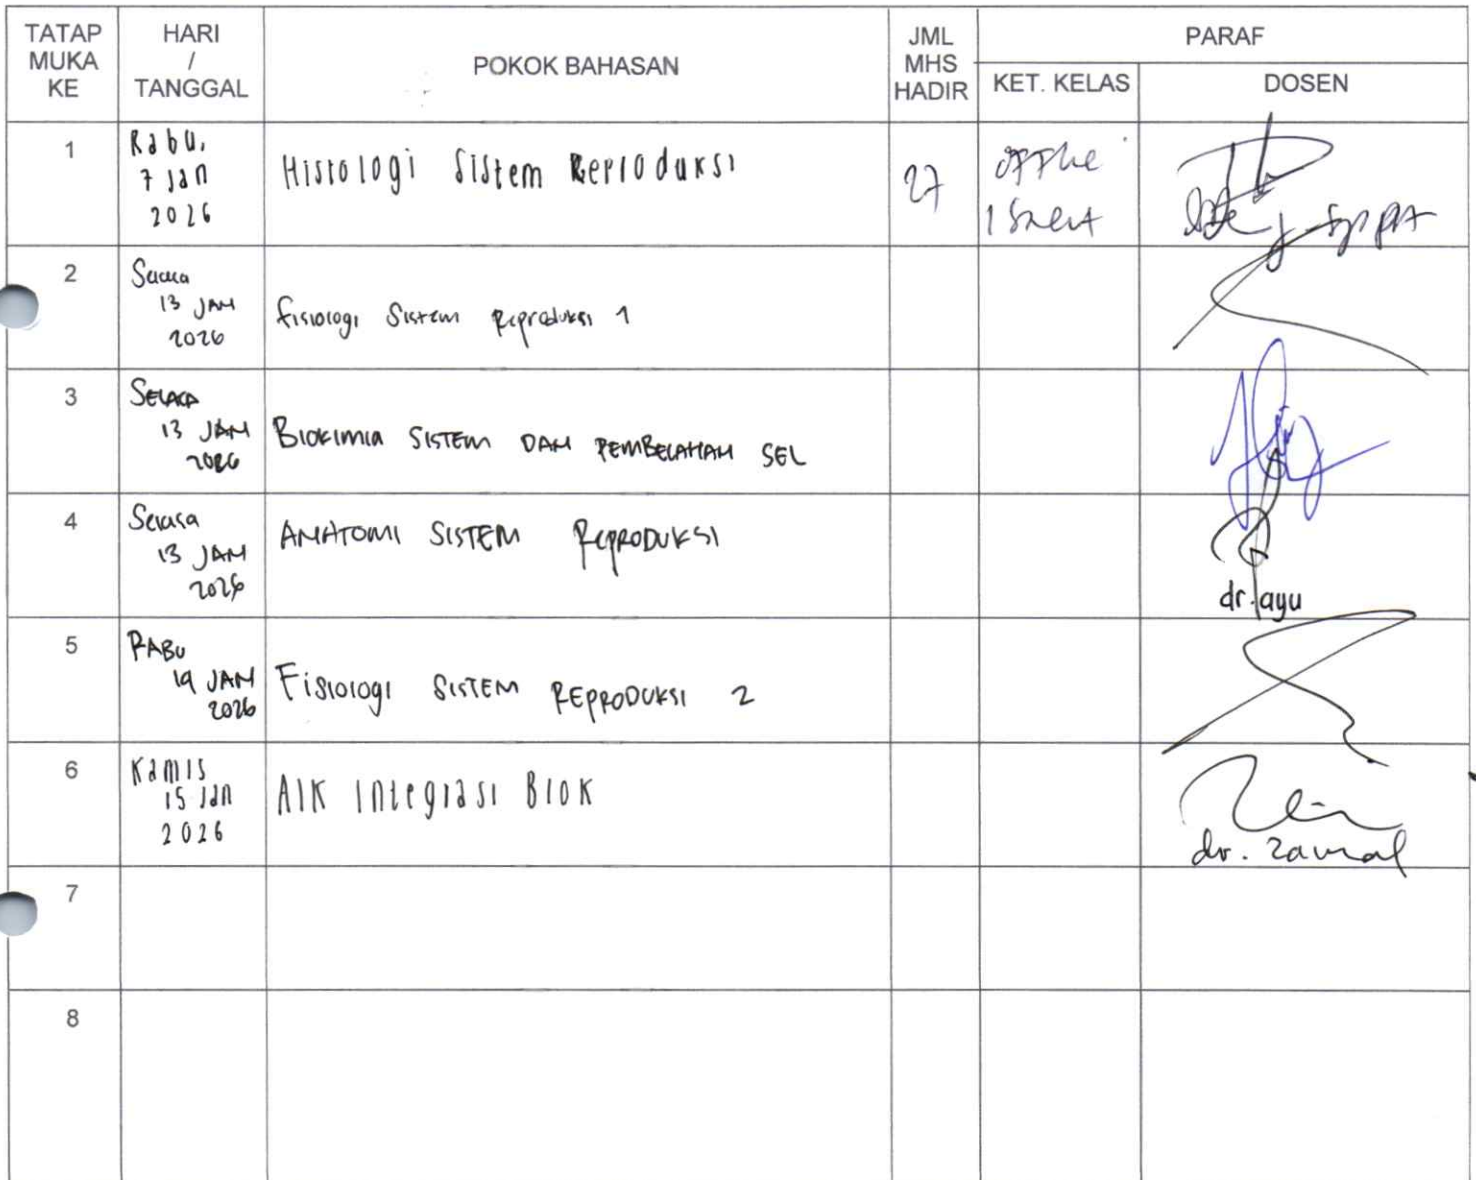 TATAP MUKA KE
HARI / TANGGAL
POKOK BAHASAN
JML MHS HADIR
PARAF
KET. KELAS
DOSEN
1
Rabu,
7 Jan
2026
Histologi Sistem Reproduksi
27
2
Selasa
13 JAN
2026
Fisiologi Sistem Reproduksi 1
3
SELASA
13 JAN
2026
BIOKIMIA SISTEM DAN PEMBELAHAN SEL
4
Selasa
13 JAN
2026
ANATOMI SISTEM REPRODUKSI
dr. ayu
5
RABU
14 JAN
2026
Fisiologi SISTEM REPRODUKSI 2
6
Kamis
15 Jan
2026
AIK Integrasi Blok
dr. Zainal
7
8